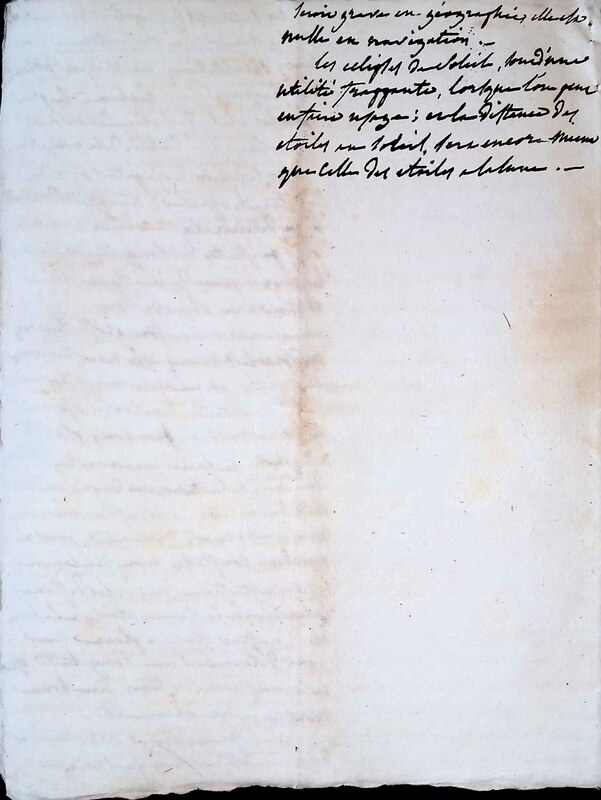 seroit grave en géographie, elle est
nulle en navigation. –
les eclipses de Soleil, sont d'une
utilité frappante, lorsque l'on peut
en faire usage; et la distance des
etoiles au Soleil, sera encore mieux
que celles des etoiles a la lune. –